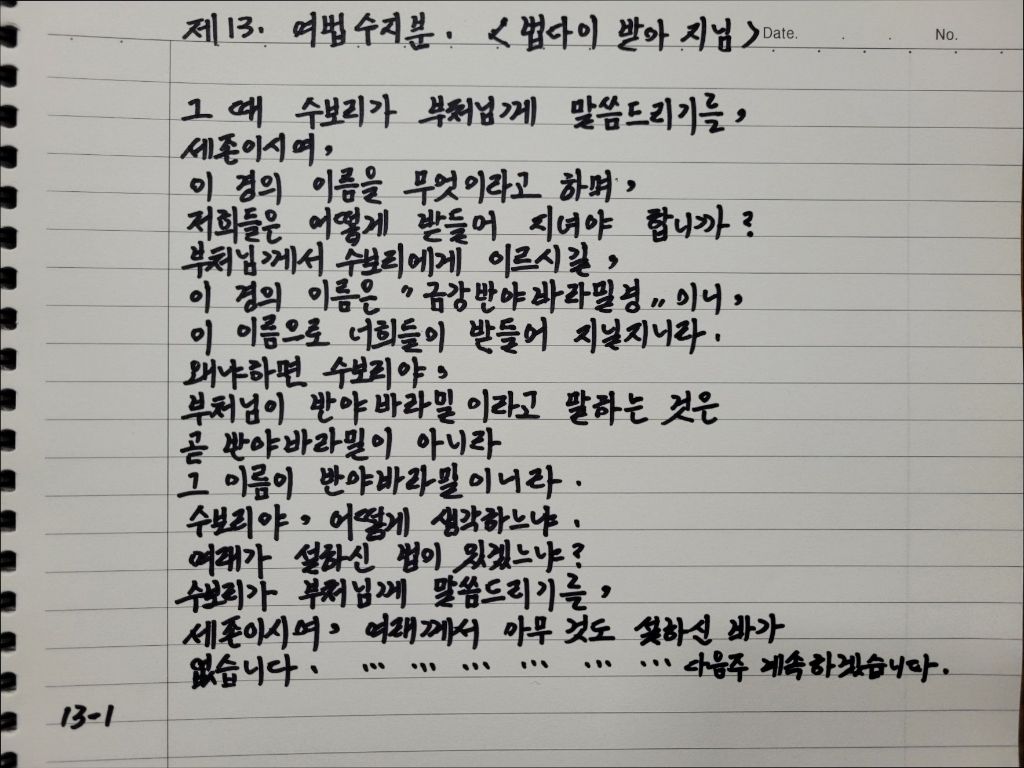 제13. 여법수지분. <법다이 받아 지님> Date. No.
그 때 수보리가 부처님께 말씀드리기를,
세존이시여,
이 경의 이름을 무엇이라고 하며,
저희들은 어떻게 받들어 지녀야 합니까?
부처님께서 수보리에게 이르시길,
이 경의 이름은 "금강반야바라밀경" 이니,
이 이름으로 너희들이 받들어 지닐지니라.
왜냐하면 수보리야,
부처님이 반야바라밀이라고 말하는 것은
곧 반야바라밀이 아니라
그 이름이 반야바라밀이니라.
수보리야, 어떻게 생각하느냐.
여래가 설하신 법이 있겠느냐?
수보리가 부처님께 말씀드리기를,
세존이시여, 여래께서 아무 것도 설하신 바가
없습니다. ... ... ... ... ... ... 다음주 계속하겠습니다.
13-1